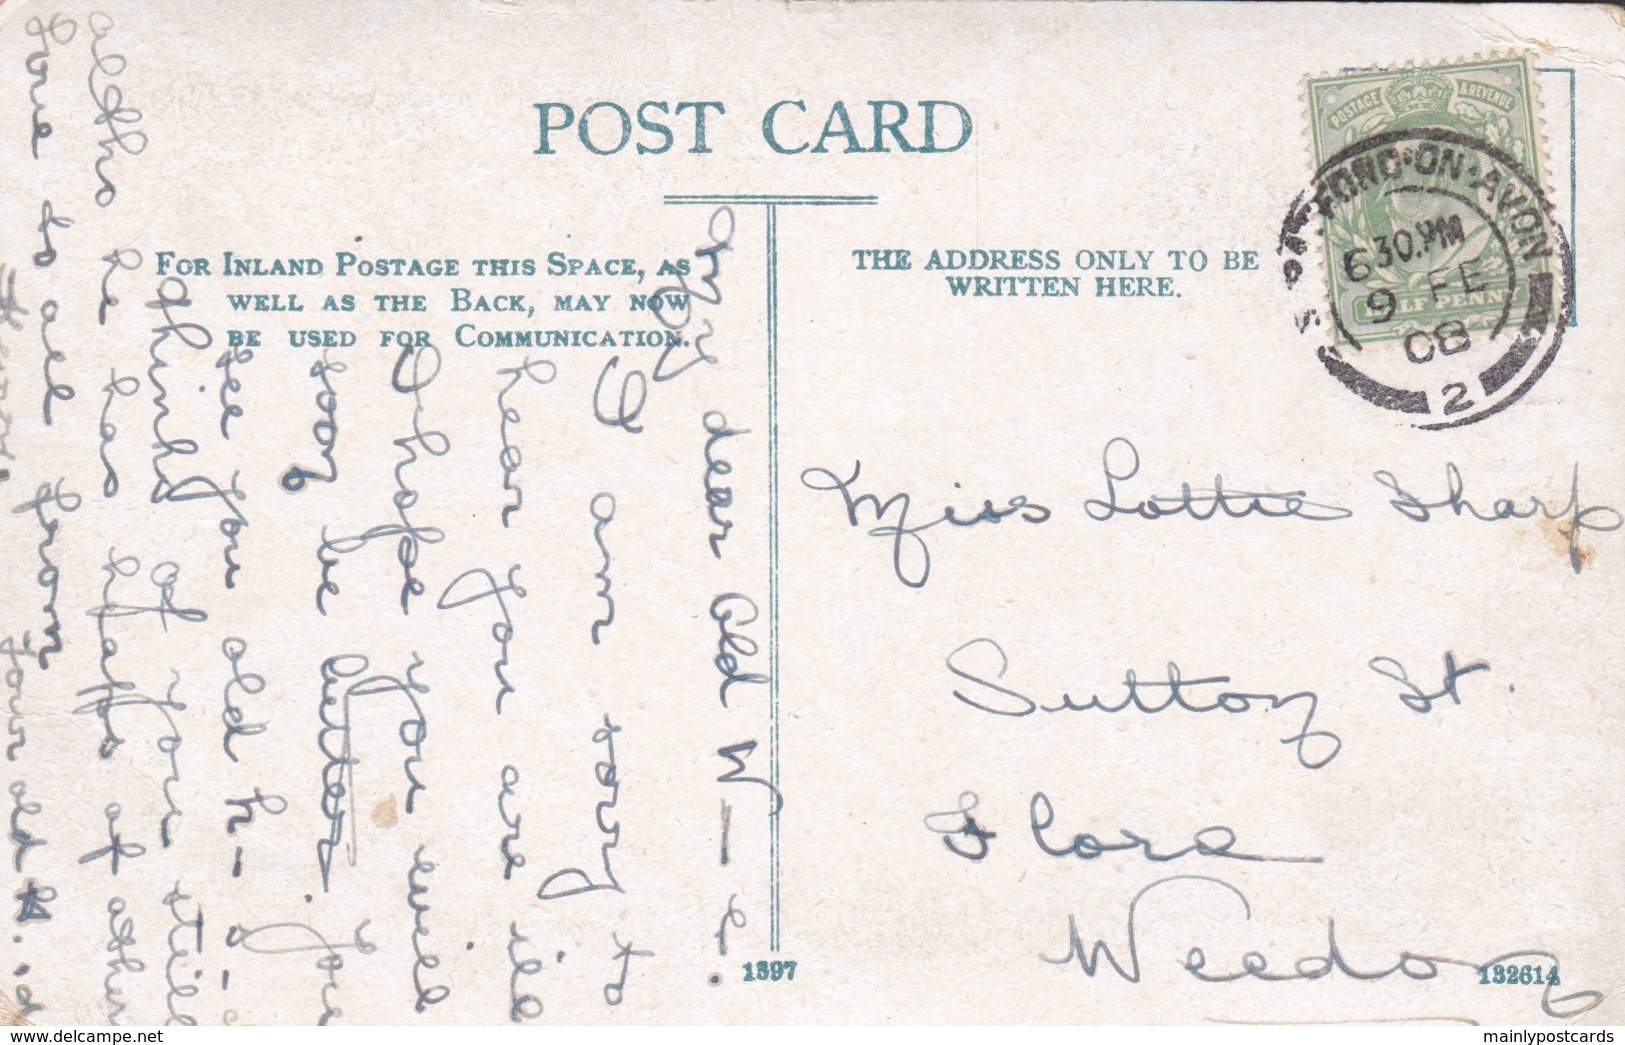 POST CARD
FOR INLAND POSTAGE THIS SPACE, AS
WELL AS THE BACK, MAY NOW
BE USED FOR COMMUNICATION.
THE ADDRESS ONLY TO BE
WRITTEN HERE.
POSTAGE & REVENUE
HALF PENNY
ST-T-FORD·ON·AVON
630.PM
9 FE
08
2
Miss Lottie Sharp
Sutton St.
Flore
Weedon
My dear old W—e.
I am sorry to
hear you are ill
I hope you will
soon be better
see you old h-s-
thinks of you still
altho he has hafto at other
love to all from
your old
1397
132614
mainlypostcards